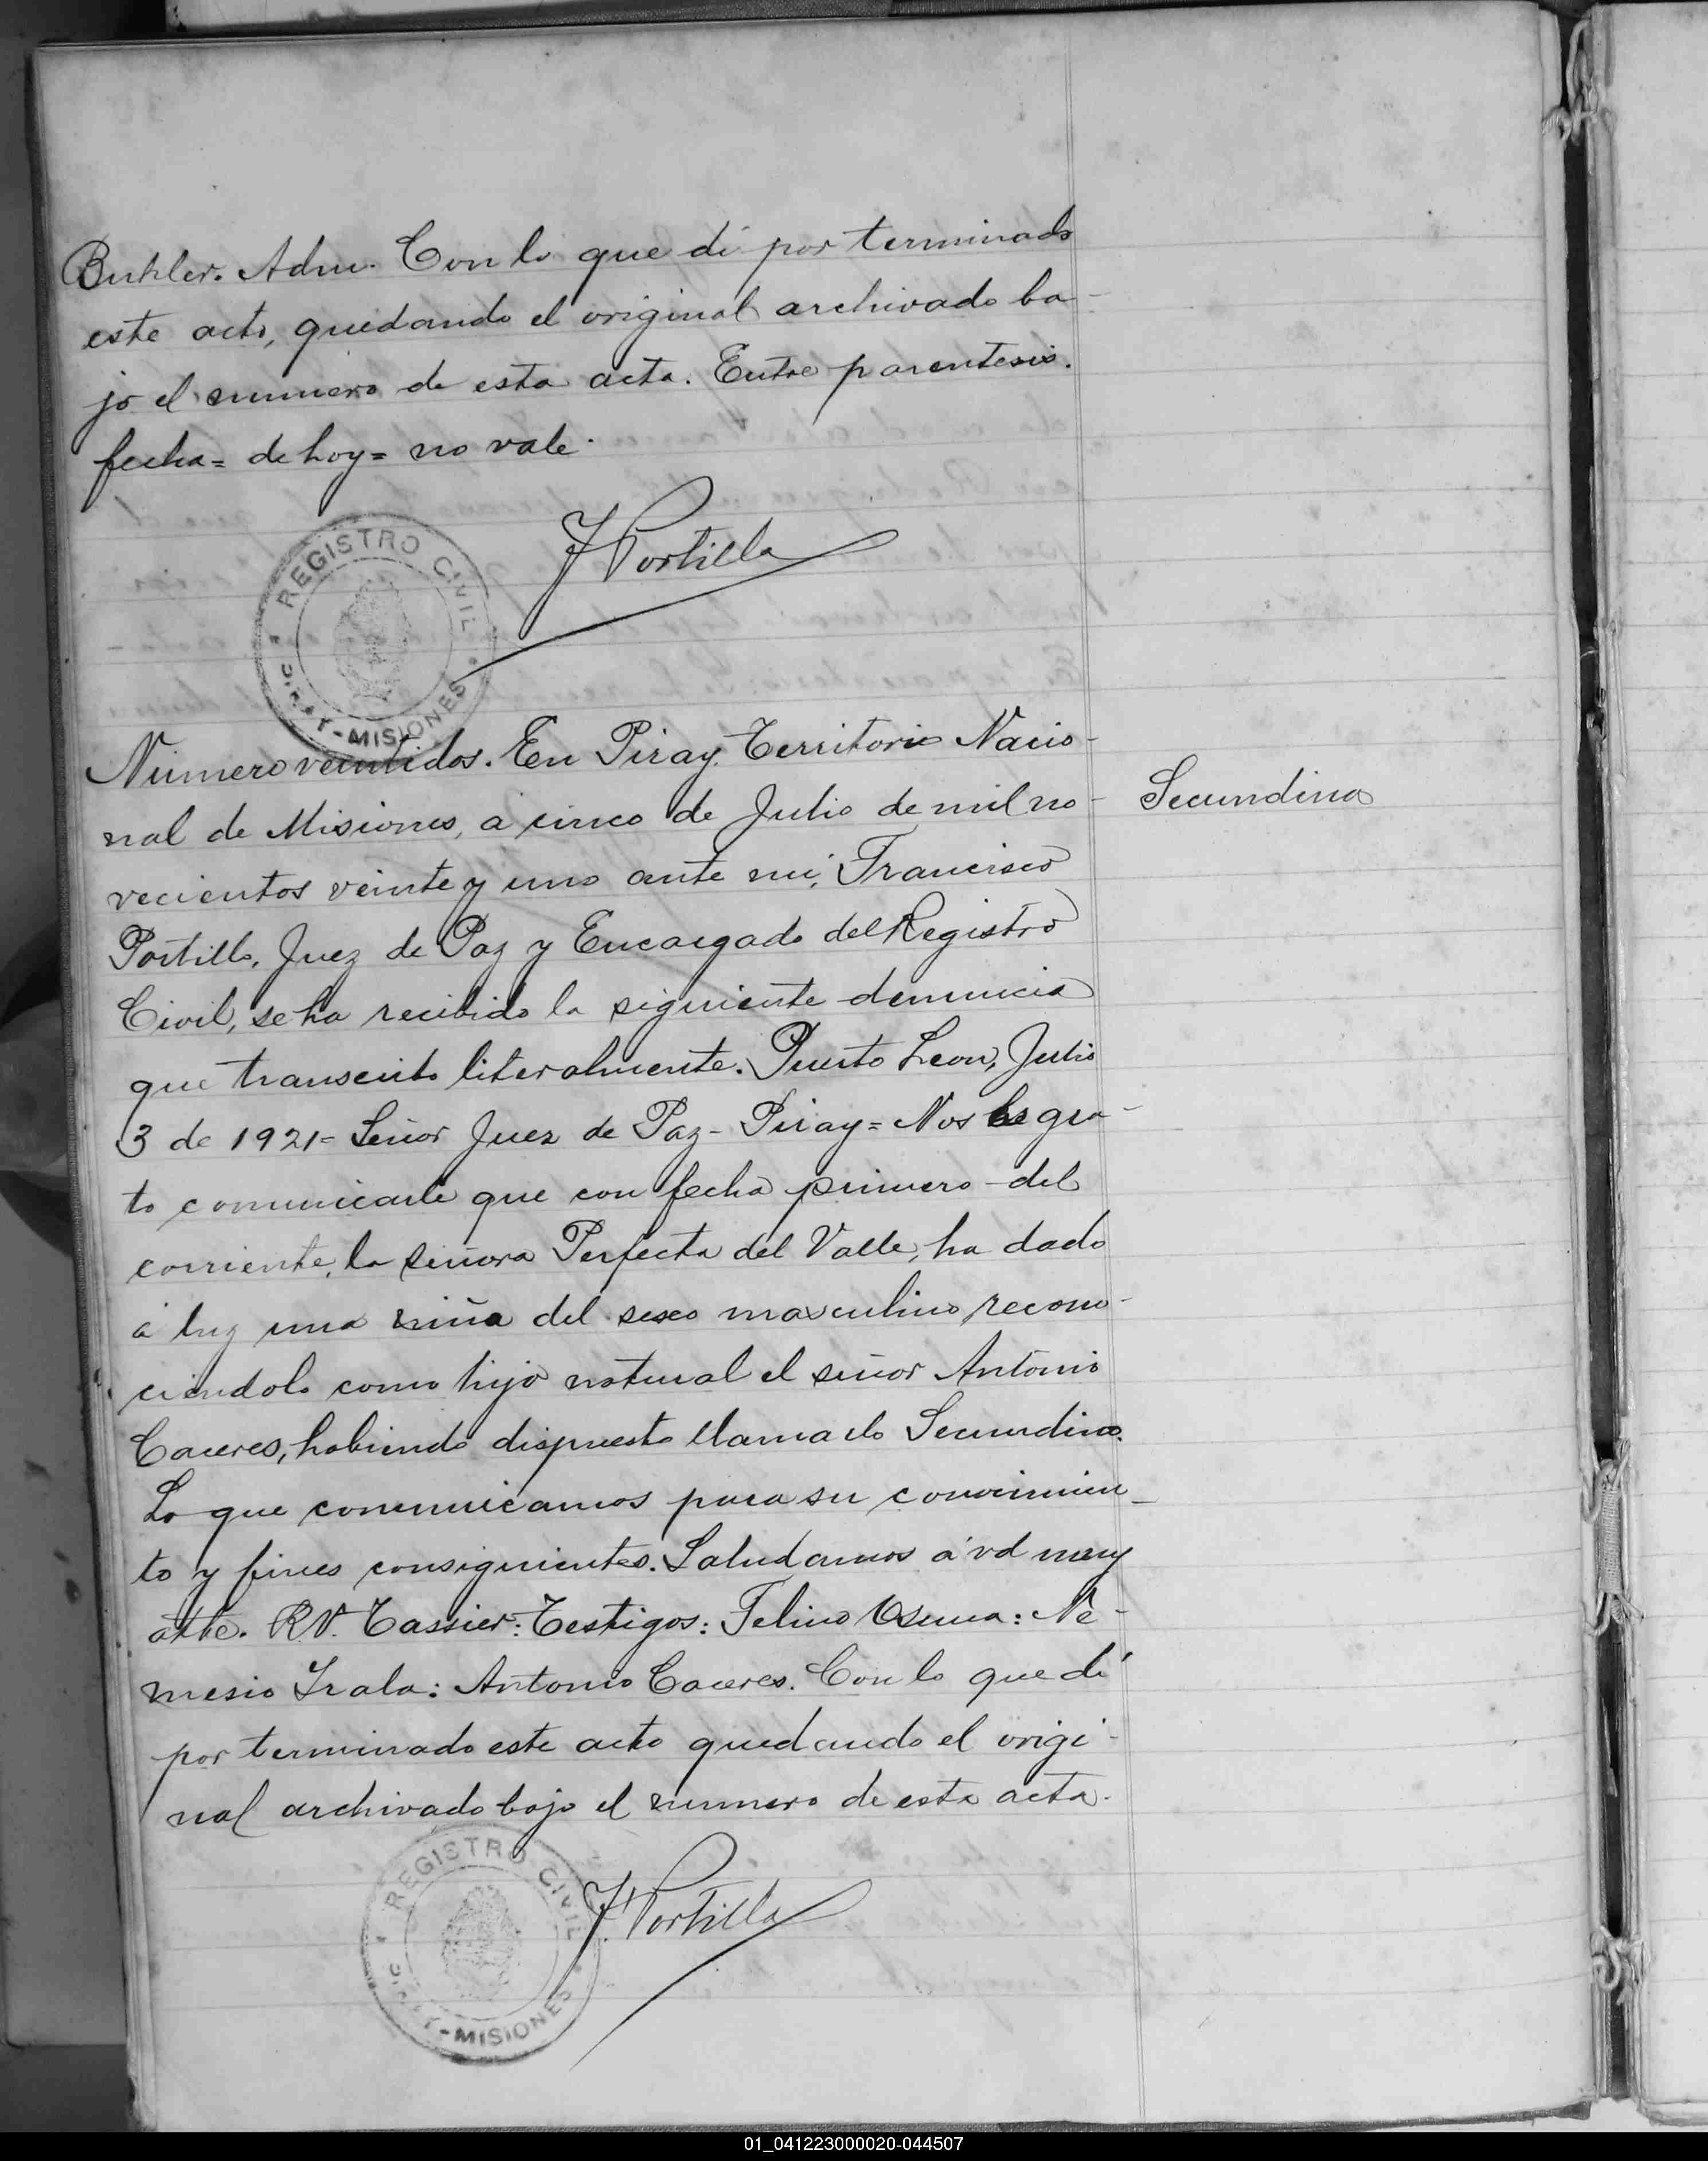 Buhler. Adm. Con lo que di por terminado
este acto, quedando el original archivado ba-
jo el numero de esta acta. Entre parentesis.
fecha= de hoy= no vale.
F Portillo
REGISTRO CIVIL
PIRAY-MISIONES
Número veintidos. En Piray, Territorio Nacio-
nal de Misiones, a cinco de Julio de mil no-
Secundino
vecientos veinte y uno ante mi, Francisco
Portillo, Juez de Paz y Encargado del Registro
Civil, se ha recibido la siguiente denuncia
que transcribo literalmente. Puerto Leon, Julio
3 de 1921= Señor Juez de Paz- Piray= Nos es gra-
to comunicarle que con fecha primero del
corriente, la señora Perfecta del Valle, ha dado
á luz una niña del sexo masculino, recono-
ciendolo como hijo natural el señor Antonio
Caceres, habiendo dispuesto llamarlo Secundino.
Lo que comunicamos para su conocimien-
to y fines consiguientes. Saludamos á vd muy
atte. R.V. Tassier: Testigos: Felino Osuna: Ne-
mesio Irala: Antonio Caceres. Con lo que dí
por terminado este acto quedando el origi-
nal archivado bajo el numero de esta acta.
REGISTRO CIVIL
PIRAY-MISIONES
F. Portillo
01_041223000020-044507